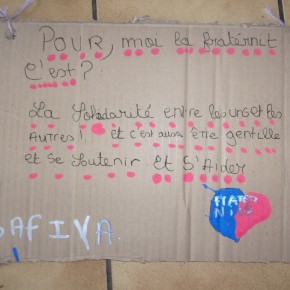 POUR, moi la fratérnit
C'est?
La Solidarité entre les uns et les
AUTRES! et c'est aussi ETRE gentille
et se soutenir Et S'Aider
FRATER
NITÉ
SAFIYA.